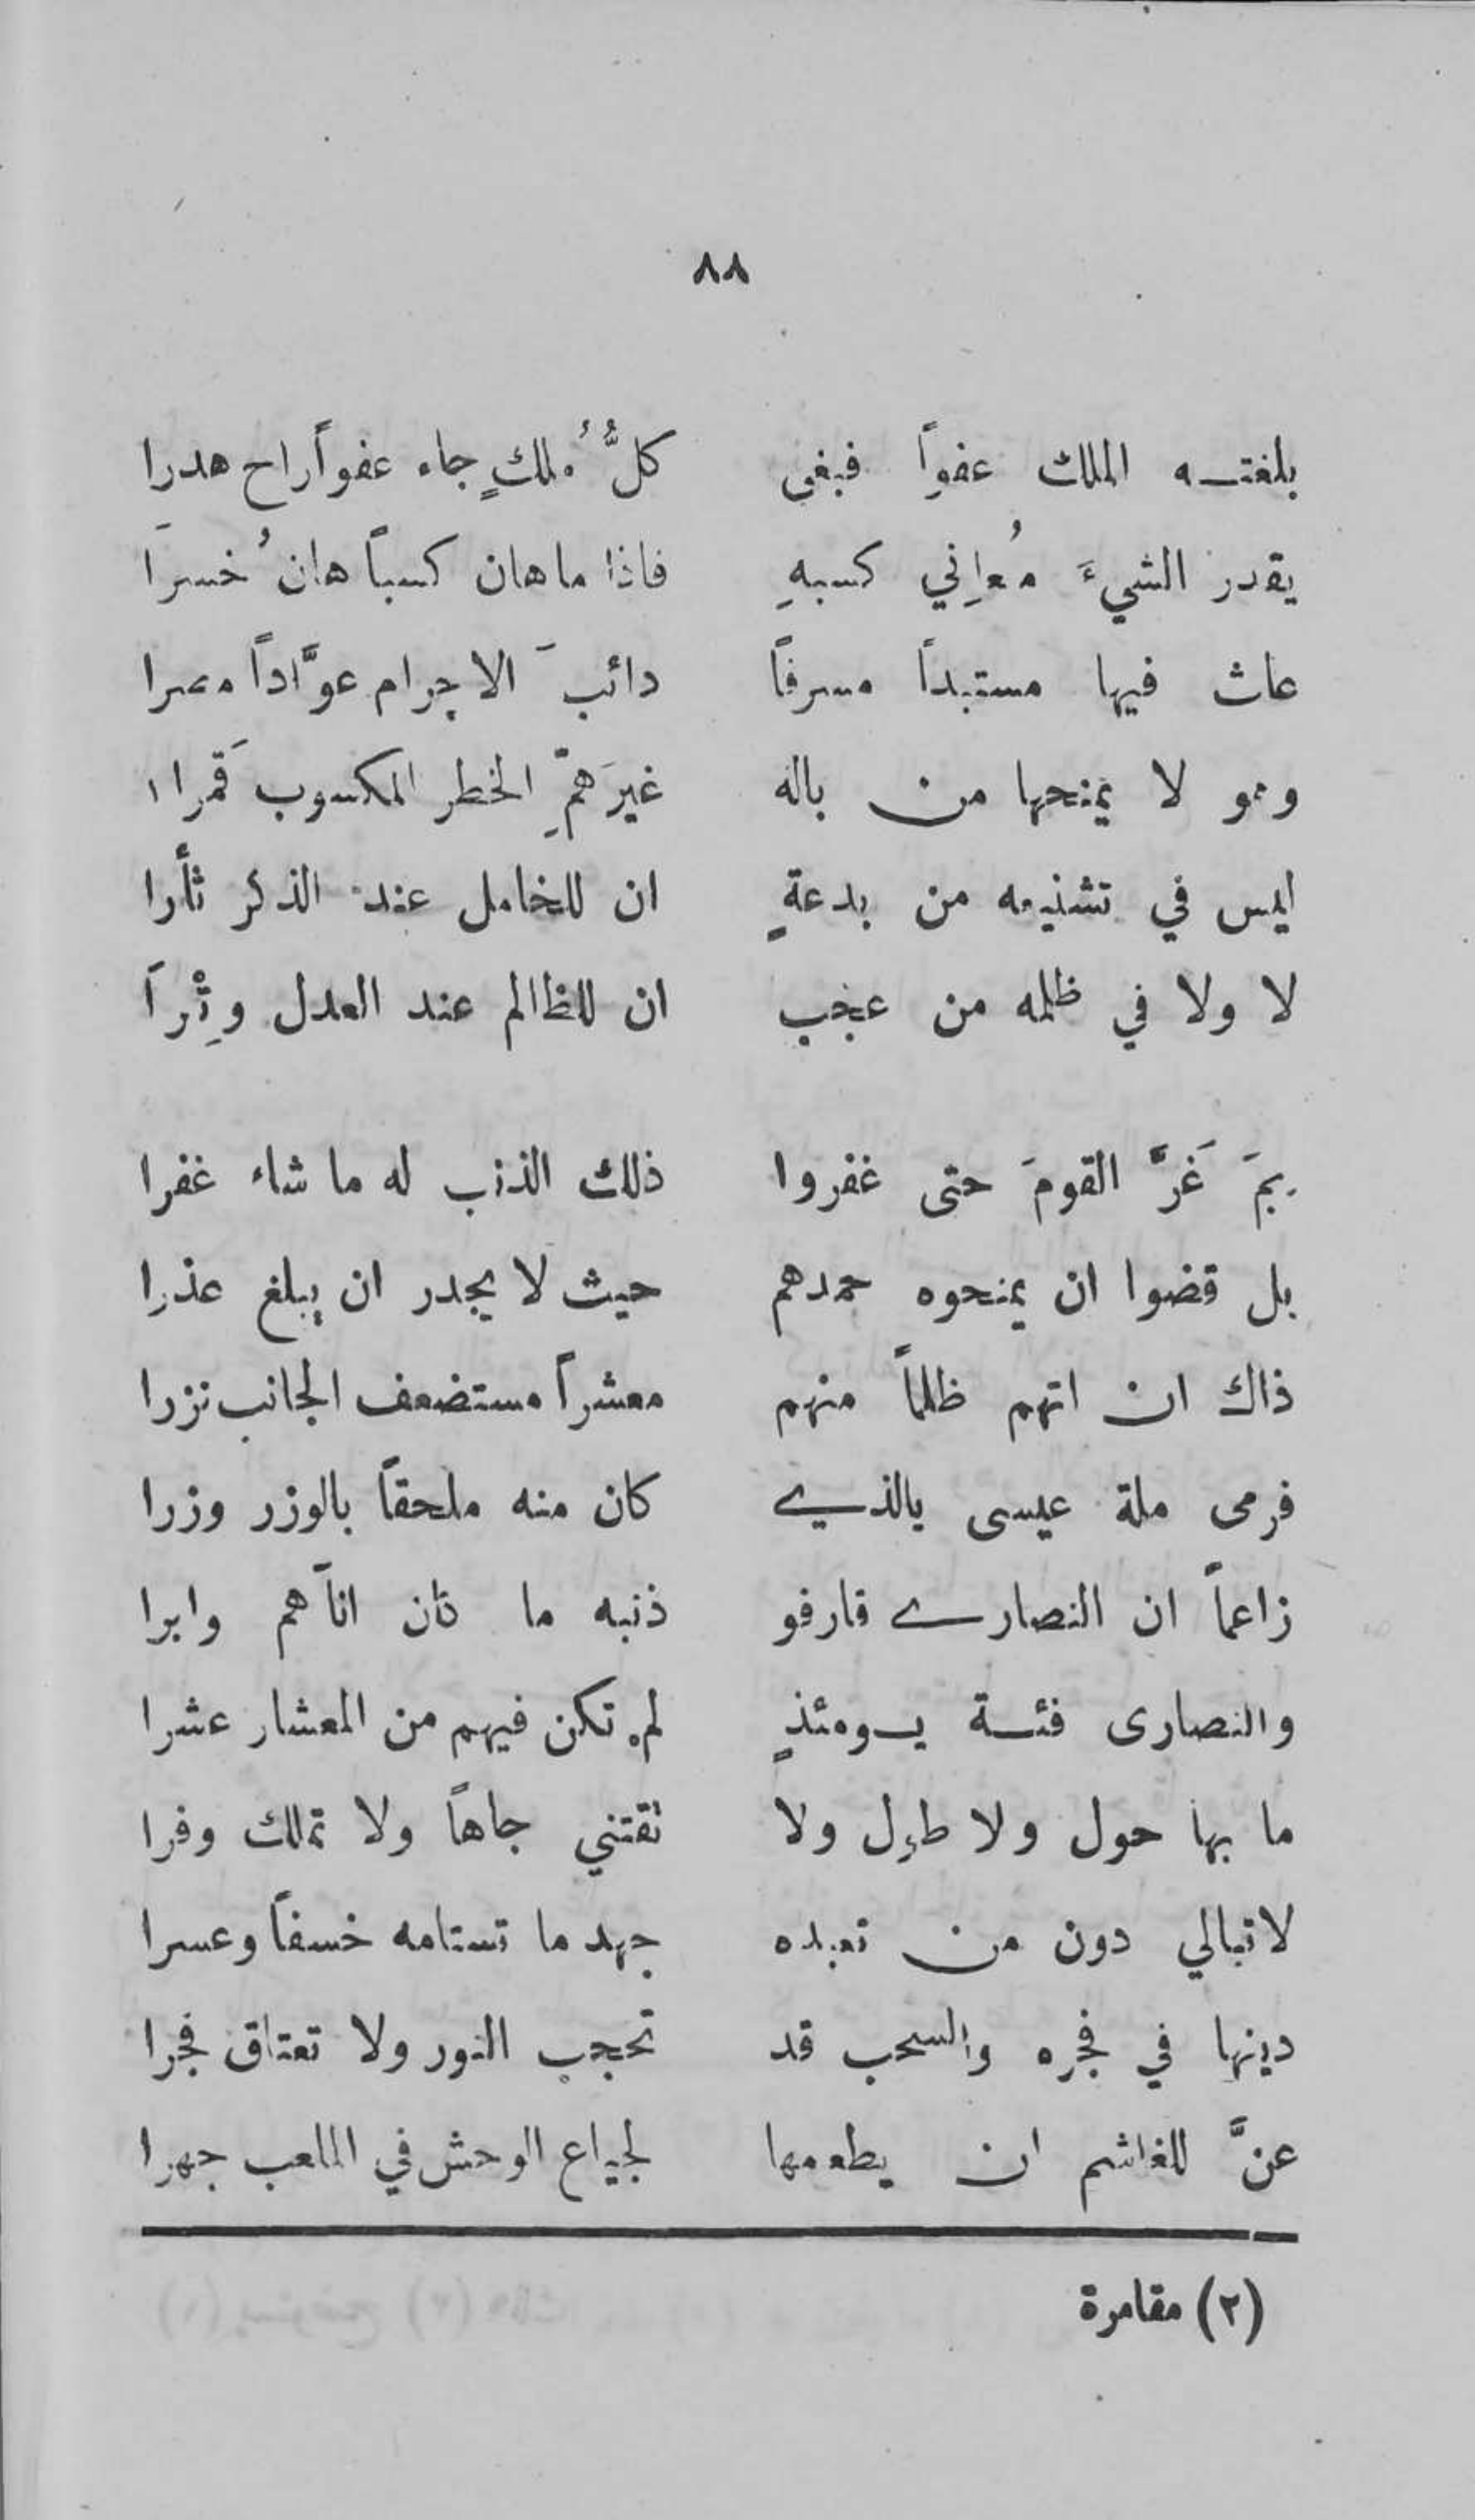 ٨٨
بلغتـه الملك عفواً فبغى كلُّ مُلكٍ جاء عفواً راح هدرا
يقدر الشيءَ مُعاني كسبهِ فاذا ما هان كسباً هان خُسرَا
عاث فيها مستبداً مسرفاً دائبَ الاجرام عوَّاداً مصرا
وهو لا يمنحها من باله غيرَ همِّ الخطر المكسوب قَمرا ١
ليس في تشنيعه من بدعةٍ ان للخامل عند الذكر ثأرا
لا ولا في ظلمه من عجب ان للظالم عند العدل وِتْراَ
بمَ غَرَّ القومَ حتى غفروا ذلك الذنب له ما شاء غفرا
بل قضوا ان يمنحوه حمدهم حيث لا يجدر ان يبلغ عذرا
ذاك ان اتهم ظلماً منهم معشراً مستضعف الجانب نزرا
فرمى ملة عيسى بالذي كان منه ملحقاً بالوزر وزرا
زاعماً ان النصارى قارفو ذنبه ما كان اتآهم وابرا
والنصارى فئـة يـومئذٍ لم تكن فيهم من المعشار عشرا
ما بها حول ولا طول ولا تقتني جاهاً ولا تملك وفرا
لا تبالي دون من تعبده جهد ما تستامه خسفاً وعسرا
دينها في فجره والسحب قد تحجب النور ولا تعتاق فجرا
عنَّ للغاشم ان يطعمها لجياع الوحش في الملعب جهرا
(٢) مقامرة